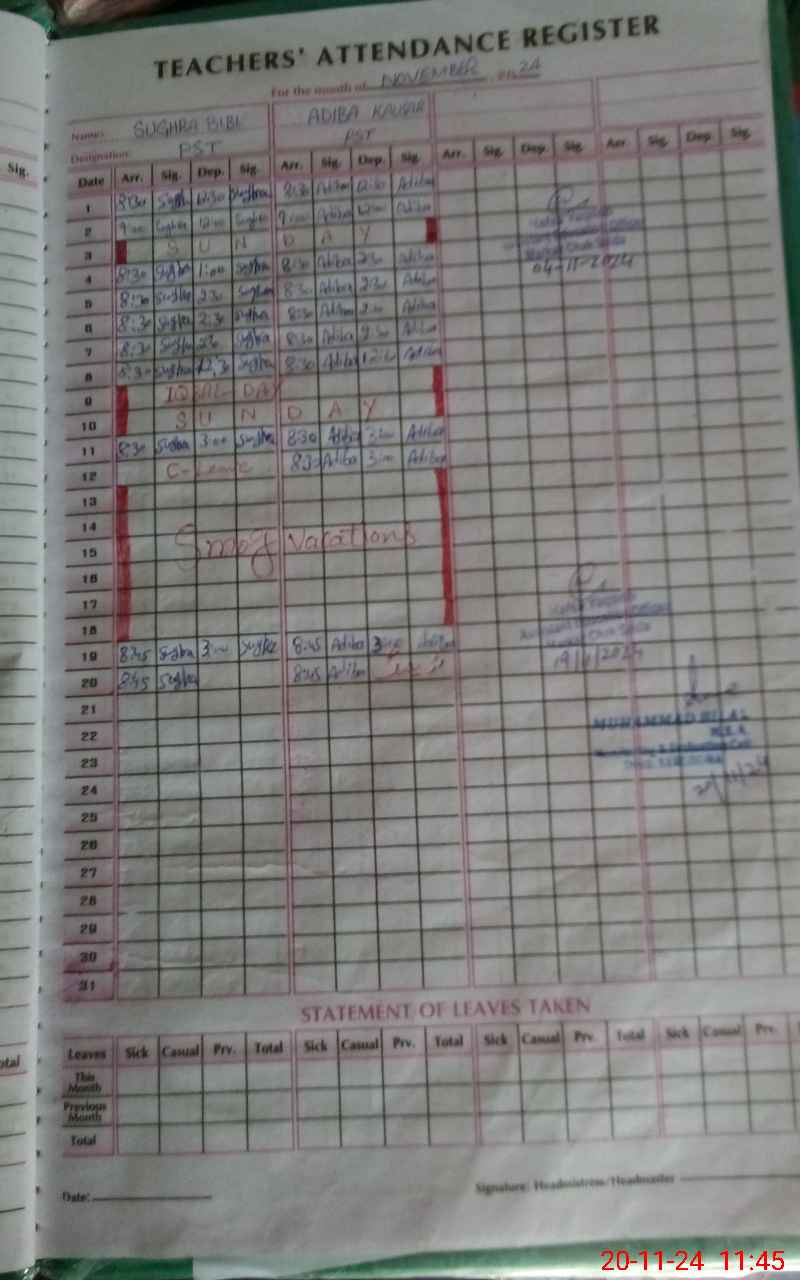 TEACHERS' ATTENDANCE REGISTER
For the month of NOVEMBER 24
Sig.
Name: SUGHRA BIBI ADIBA KAUSAR
Designation: PST PST
Date Arr. Sig. Dep. Sig. Arr. Sig. Dep. Sig. Arr. Sig. Dep. Sig. Arr. Sig. Dep. Sig.
1 8:30 Sughra 12:30 Sughra 8:30 Adiba 12:30 Adiba
2 9:00 Sughra 12:00 Sughra 9:00 Adiba 12:00 Adiba
3 S U N D A Y
4 8:30 Sughra 1:00 Sughra 8:30 Adiba 2:30 Adiba
04-11-2024
5 8:30 Sughra 2:30 Sughra 8:30 Adiba 2:30 Adiba
6 8:30 Sughra 2:30 Sughra 8:30 Adiba 2:30 Adiba
7 8:30 Sughra 2:30 Sughra 8:30 Adiba 2:30 Adiba
8 8:30 Sughra 12:30 Sughra 8:30 Adiba 12:30 Adiba
9 IQBAL DAY
10 S U N D A Y
11 8:30 Sughra 3:00 Sughra 8:30 Adiba 3:00 Adiba
12 C-Leave 8:30 Adiba 3:00 Adiba
13
14
15 Smog Vacations
16
17
18
19 8:45 Sughra 3:00 Sughra 8:45 Adiba 3:00 Adiba
20 8:45 Sughra 8:45 Adiba
21
22
MUHAMMAD BILAL
23
24
25
26
27
28
29
30
31
STATEMENT OF LEAVES TAKEN
Leaves Sick Casual Prv. Total Sick Casual Prv. Total Sick Casual Prv. Total Sick Casual Prv.
This Month
Previous Month
Total
Date:
Signature: Headmistress/Headmaster
20-11-24 11:45